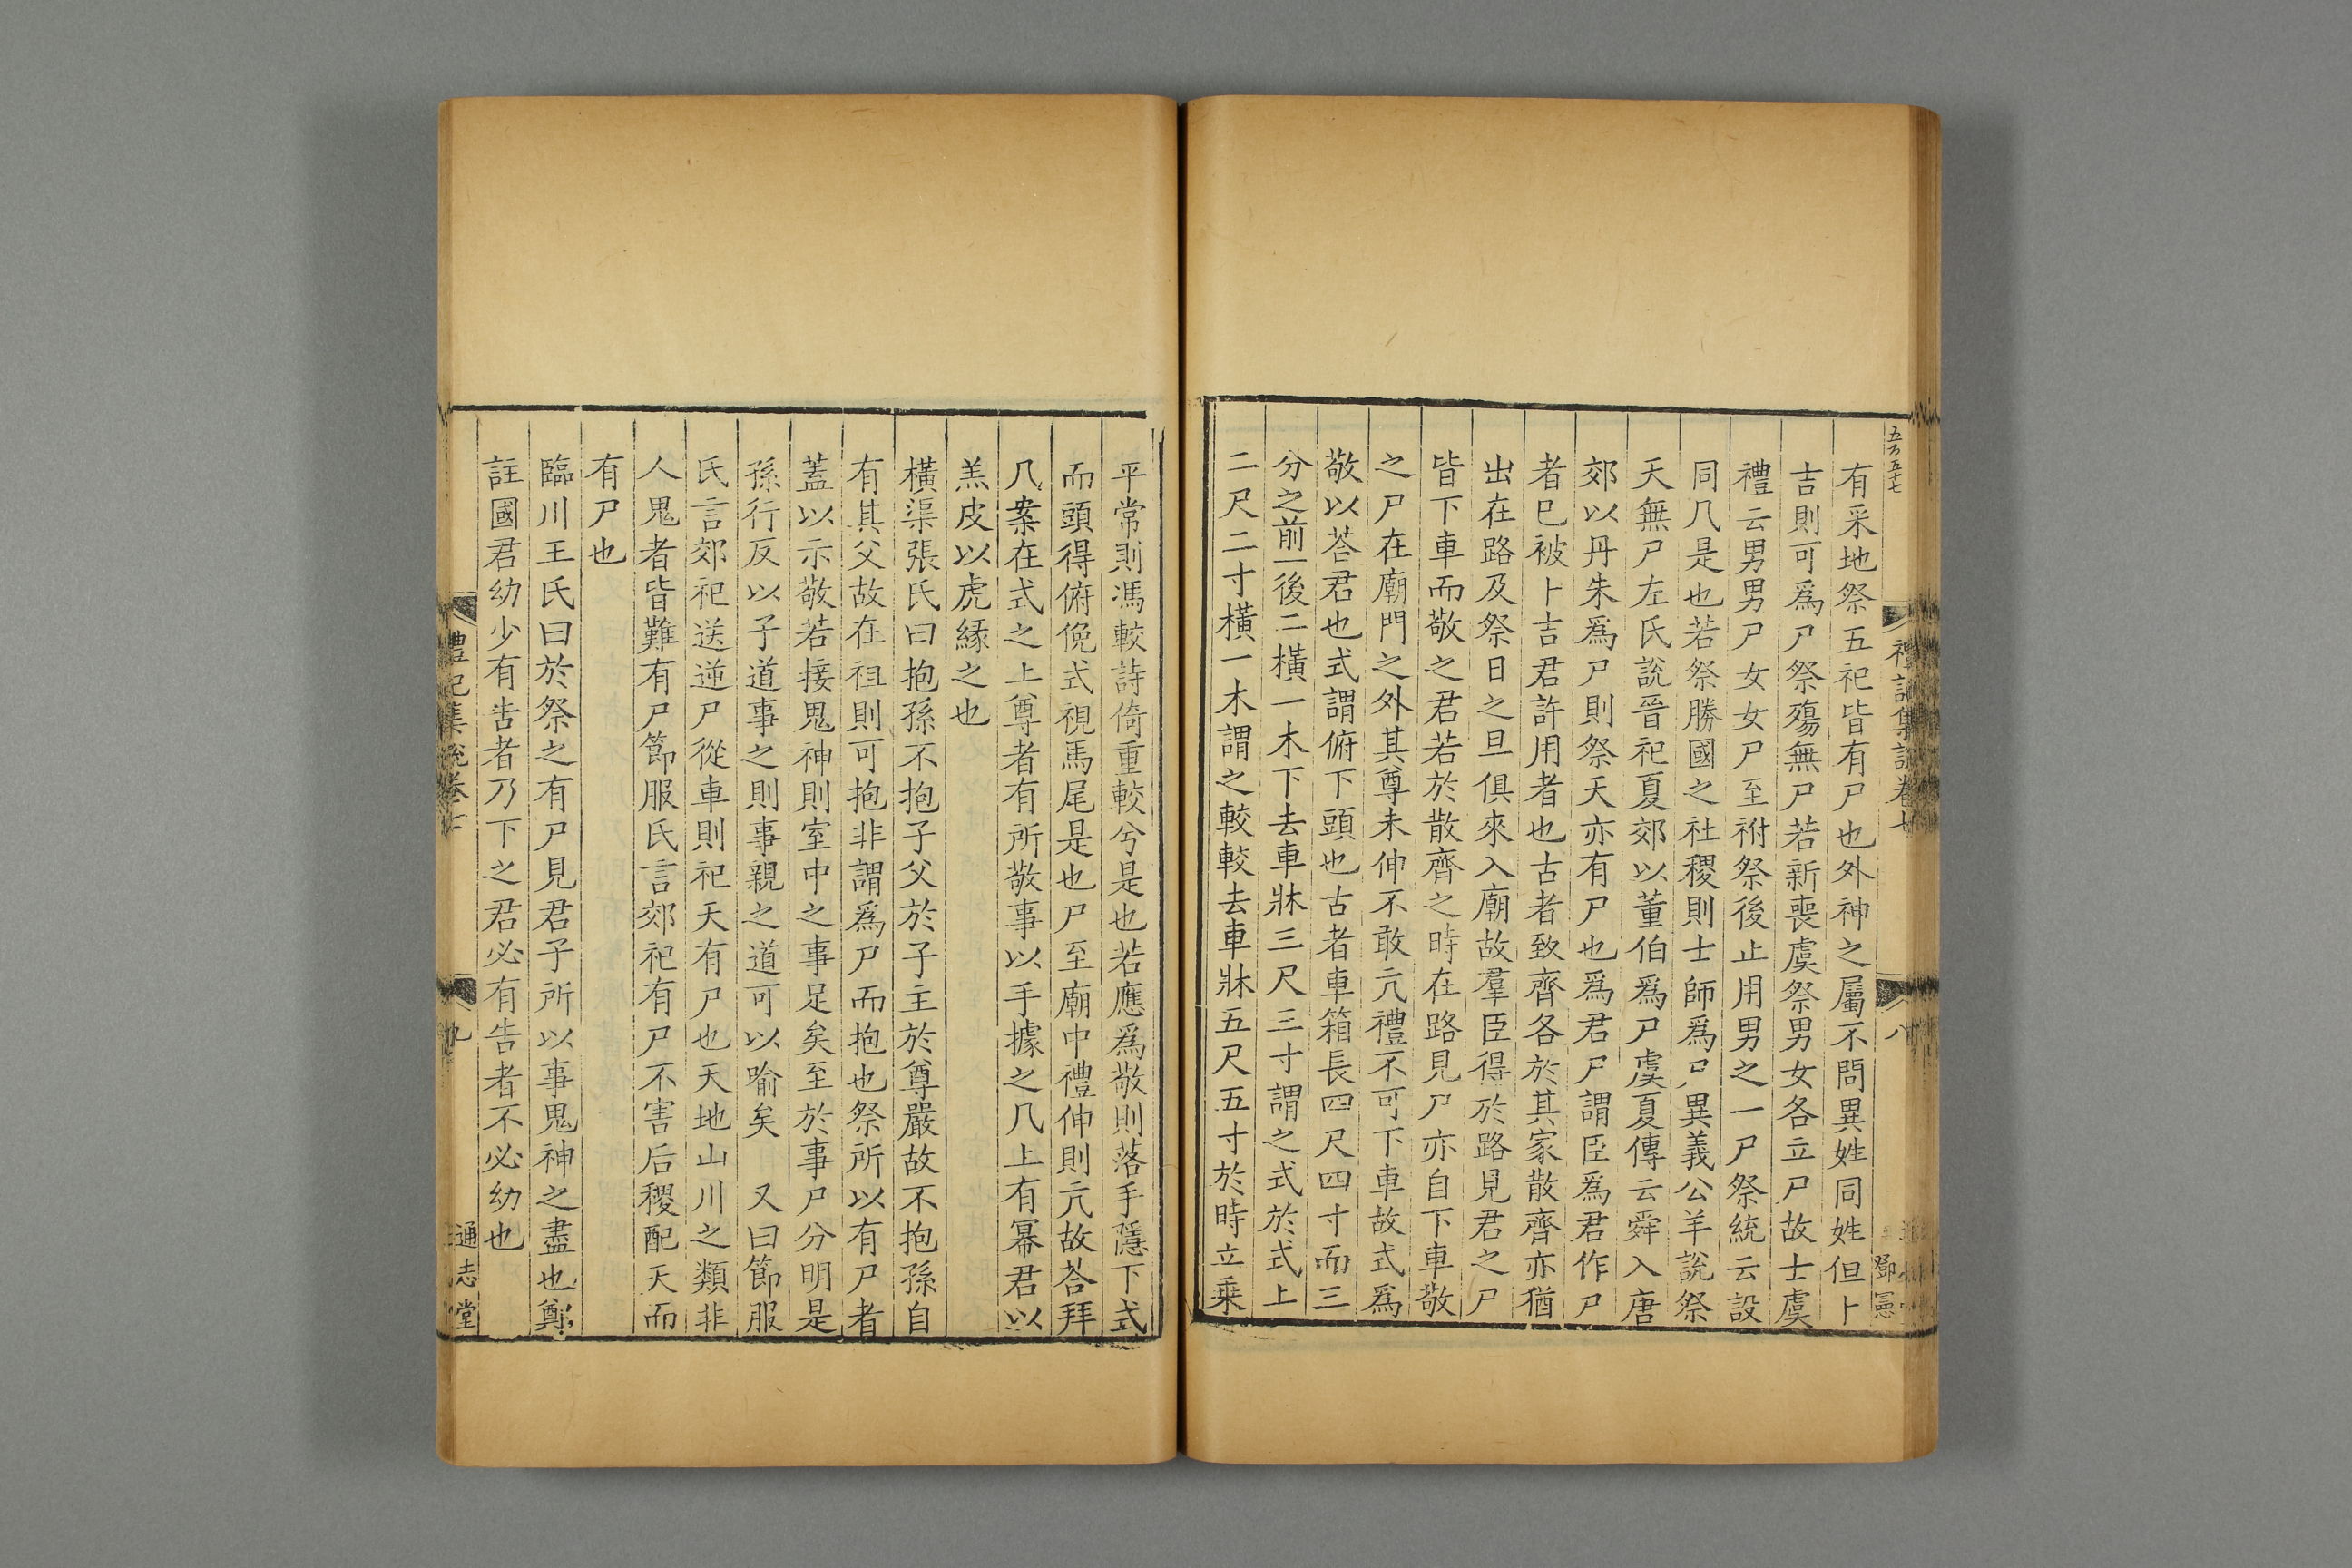 五百五十七
禮記集說卷七
八
鄧憲
有采地祭五祀皆有尸也外神之屬不問異姓同姓但卜
吉則可爲尸祭殤無尸若新喪虞祭男女各立尸故士虞
禮云男男尸女女尸至祔祭後止用男之一尸祭統云設
同几是也若祭勝國之社稷則士師爲尸異義公羊說祭
天無尸左氏說晉祀夏郊以董伯爲尸虞夏傳云舜入唐
郊以丹朱爲尸則祭天亦有尸也爲君尸謂臣爲君作尸
者巳被卜吉君許用者也古者致齊各於其家散齊亦猶
出在路及祭日之旦俱來入廟故羣臣得於路見君之尸
皆下車而敬之君若於散齊之時在路見尸亦自下車敬
之尸在廟門之外其尊未伸不敢亢禮不可下車故式爲
敬以荅君也式謂俯下頭也古者車箱長四尺四寸而三
分之前一後二橫一木下去車牀三尺三寸謂之式於式上
二尺二寸橫一木謂之較較去車牀五尺五寸於時立乗
平常則馮較詩倚重較兮是也若應爲敬則落手隱下式
而頭得俯俛式視馬尾是也尸至廟中禮伸則亢故荅拜
几案在式之上尊者有所敬事以手據之几上有冪君以
羔皮以虎緣之也
橫渠張氏曰抱孫不抱子父於子主於尊嚴故不抱孫自
有其父故在祖則可抱非謂爲尸而抱也祭所以有尸者
蓋以示敬若接鬼神則室中之事足矣至於事尸分明是
孫行反以子道事之則事親之道可以喻矣　又曰節服
氏言郊祀送逆尸從車則祀天有尸也天地山川之類非
人鬼者皆難有尸節服氏言郊祀有尸不害后稷配天而
有尸也
臨川王氏曰於祭之有尸見君子所以事鬼神之盡也鄭
註國君幼少有告者乃下之君必有告者不必幼也
禮記集說卷七
九
通志堂